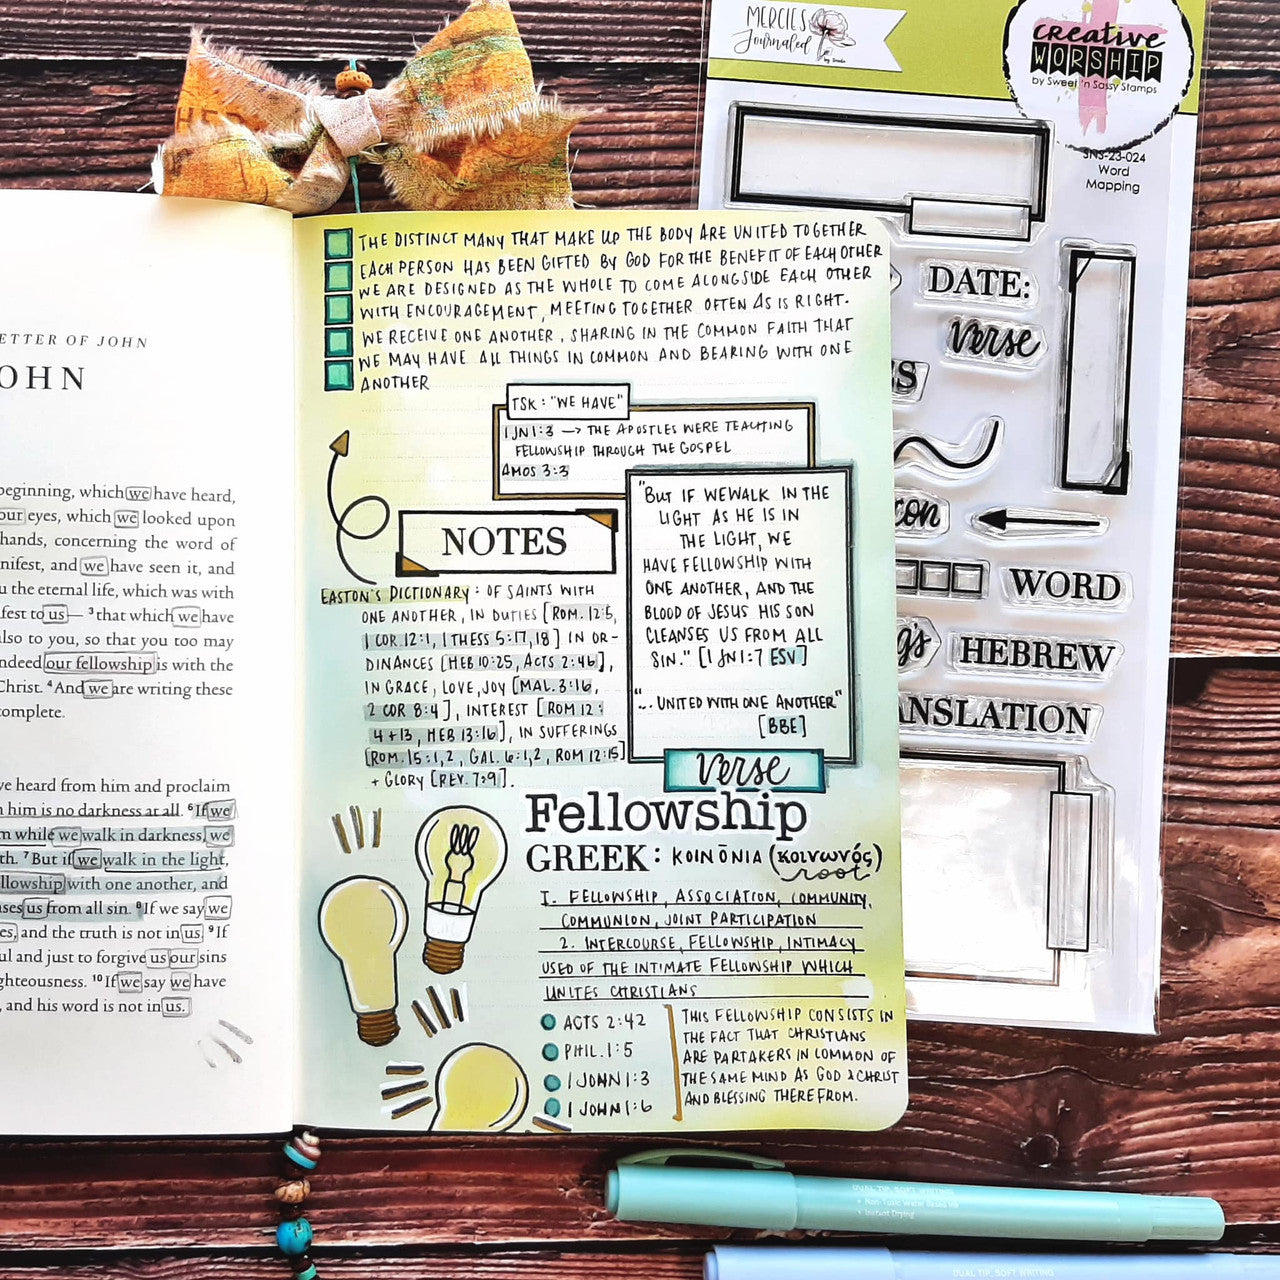 MERCIES
Journaled
creative
WORSHIP
by Sweet 'n Sassy Stamps
SNS-23-024
Word
Mapping
DATE:
Verse
WORD
HEBREW
ETTER OF JOHN
OHN
beginning, which we have heard,
our eyes, which we looked upon
hands, concerning the word of
nifest, and we have seen it, and
u the eternal life, which was with
fest to us— ³that which we have
also to you, so that you too may
ndeed our fellowship is with the
Christ. ⁴And we are writing these
omplete.
ve heard from him and proclaim
him is no darkness at all. ⁶If we
m while we walk in darkness, we
th. ⁷But if we walk in the light,
llowship with one another, and
ses us from all sin. ⁸If we say we
es, and the truth is not in us. ⁹If
ul and just to forgive us our sins
ghteousness. ¹⁰If we say we have
, and his word is not in us.
THE DISTINCT MANY THAT MAKE UP THE BODY ARE UNITED TOGETHER
EACH PERSON HAS BEEN GIFTED BY GOD FOR THE BENEFIT OF EACH OTHER
WE ARE DESIGNED AS THE WHOLE TO COME ALONGSIDE EACH OTHER
WITH ENCOURAGEMENT, MEETING TOGETHER OFTEN AS IS RIGHT.
WE RECEIVE ONE ANOTHER, SHARING IN THE COMMON FAITH THAT
WE MAY HAVE ALL THINGS IN COMMON AND BEARING WITH ONE
ANOTHER
TSK: "WE HAVE"
1 JN 1:3 → THE APOSTLES WERE TEACHING
FELLOWSHIP THROUGH THE GOSPEL
AMOS 3:3
NOTES
EASTON'S DICTIONARY: OF SAINTS WITH
ONE ANOTHER, IN DUTIES [ROM. 12:5,
1 COR 12:1, 1 THESS 5:17,18] IN OR-
DINANCES [HEB 10:25, ACTS 2:46],
IN GRACE, LOVE, JOY [MAL. 3:16,
2 COR 8:4], INTEREST [ROM 12:
4+13, HEB 13:16], IN SUFFERINGS
[ROM. 15:1,2, GAL. 6:1,2, ROM 12:15]
+ GLORY [REV. 7:9].
"BUT IF WE WALK IN THE
LIGHT AS HE IS IN
THE LIGHT, WE
HAVE FELLOWSHIP WITH
ONE ANOTHER, AND THE
BLOOD OF JESUS HIS SON
CLEANSES US FROM ALL
SIN." [1 JN 1:7 ESV]
"... UNITED WITH ONE ANOTHER"
[BBE]
Verse
Fellowship
GREEK: KOINŌNIA (κοινωνός)
root
1. FELLOWSHIP, ASSOCIATION, COMMUNITY,
COMMUNION, JOINT PARTICIPATION
2. INTERCOURSE, FELLOWSHIP, INTIMACY
USED OF THE INTIMATE FELLOWSHIP WHICH
UNITES CHRISTIANS
ACTS 2:42
PHIL. 1:5
1 JOHN 1:3
1 JOHN 1:6
THIS FELLOWSHIP CONSISTS IN
THE FACT THAT CHRISTIANS
ARE PARTAKERS IN COMMON OF
THE SAME MIND AS GOD & CHRIST
AND BLESSING THEREFROM.
DUAL TIP, SOFT WRITING
• Non-Toxic Water Based Ink
• Instant Drying
DUAL TIP, SOFT WRITING